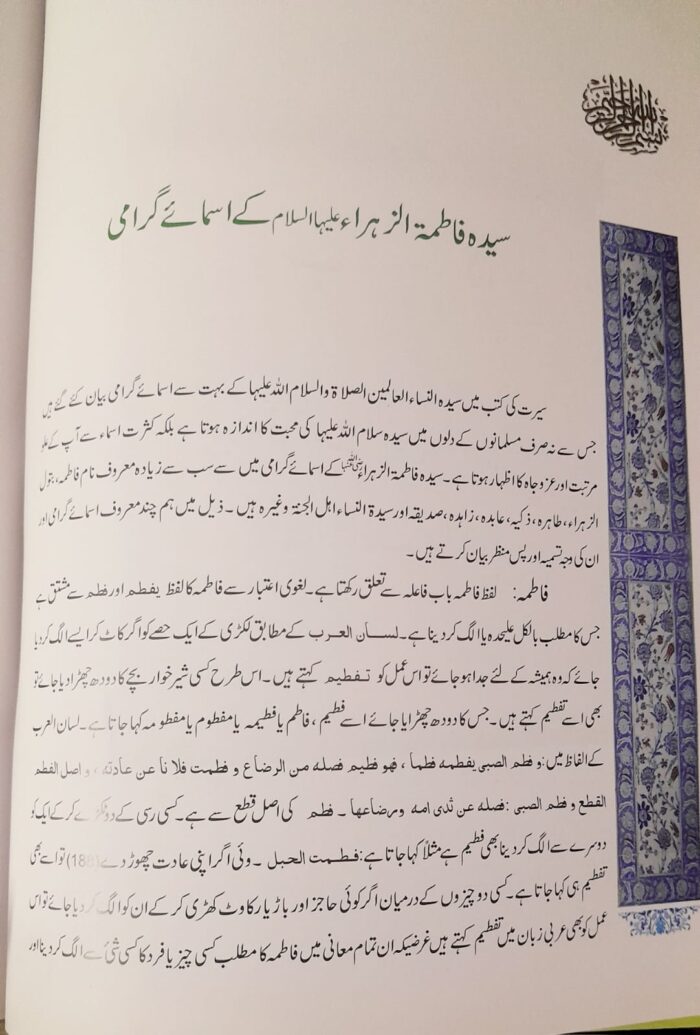 بسم الله الرحمن الرحيم
سیدہ فاطمۃ الزہراء علیہا السلام کے اسمائے گرامی
سیرت کی کتب میں سیدہ النساء العالمین الصلاۃ والسلام اللہ علیہا کے بہت سے اسمائے گرامی بیان کئے گئے ہیں
جس سے نہ صرف مسلمانوں کے دلوں میں سیدہ سلام اللہ علیہا کی محبت کا اندازہ ہوتا ہے بلکہ کثرت اسماء سے آپ کے
مرتبت اور عز و جاہ کا اظہار ہوتا ہے۔ سیدہ فاطمۃ الزہراء کے اسمائے گرامی میں سے سب سے زیادہ معروف نام فاطمہ، بتول
الزہراء، طاہرہ، ذکیہ، عابدہ، زاہدہ، صدیقہ اور سیدۃ النساء اہل الجنۃ وغیرہ ہیں ۔ ذیل میں ہم چند معروف اسمائے گرامی اور
ان کی وجہ تسمیہ اور پس منظر بیان کرتے ہیں ۔
فاطمہ: لفظ فاطمہ باب فاعلہ سے تعلق رکھتا ہے۔ لغوی اعتبار سے فاطمہ کا لفظ یفطم اور فطم سے مشتق ہے
جس کا مطلب بالکل علیحدہ یا الگ کر دینا ہے۔ لسان العرب کے مطابق لکڑی کے ایک حصے کو اگر کاٹ کر ایسے الگ کر دیا
جائے کہ وہ ہمیشہ کے لئے جدا ہو جائے تو اس عمل کو تفطیم کہتے ہیں ۔ اس طرح کسی شیر خوار بچے کا دودھ چھڑا دیا جائے تو
بھی اسے تفطیم کہتے ہیں ۔ جس کا دودھ چھڑایا جائے اسے فطیم ، فاطم یا فطیمہ یا مفطوم یا مفطومہ کہا جاتا ہے۔ لسان العرب
کے الفاظ میں: و فطم الصبی یفطمه فطما ، فهو فطیم فصله من الرضاع و فطمت فلانا عن عادته ، و اصل الفطم
القطع و فطم الصبی : فصله عن ثدی امه ورضاعها ۔ فطم کی اصل قطع سے ہے۔ کسی رسی کے دو ٹکڑے کر کے ایک کو
دوسرے سے الگ کر دینا بھی فطیم ہے مثلاً کہا جاتا ہے: فطمت الحبل ۔ وئی اگر اپنی عادت چھوڑ دے (188) تو اسے بھی
تفطیم ہی کہا جاتا ہے۔ کسی دو چیزوں کے درمیان اگر کوئی حاجز اور باڑ یا رکاوٹ کھڑی کر کے ان کو الگ کر دیا جائے تو اس
عمل کو بھی عربی زبان میں تفطیم کہتے ہیں غرضیکہ ان تمام معانی میں فاطمہ کا مطلب کسی چیز یا فرد کا کسی شئ سے الگ کر دینا اور